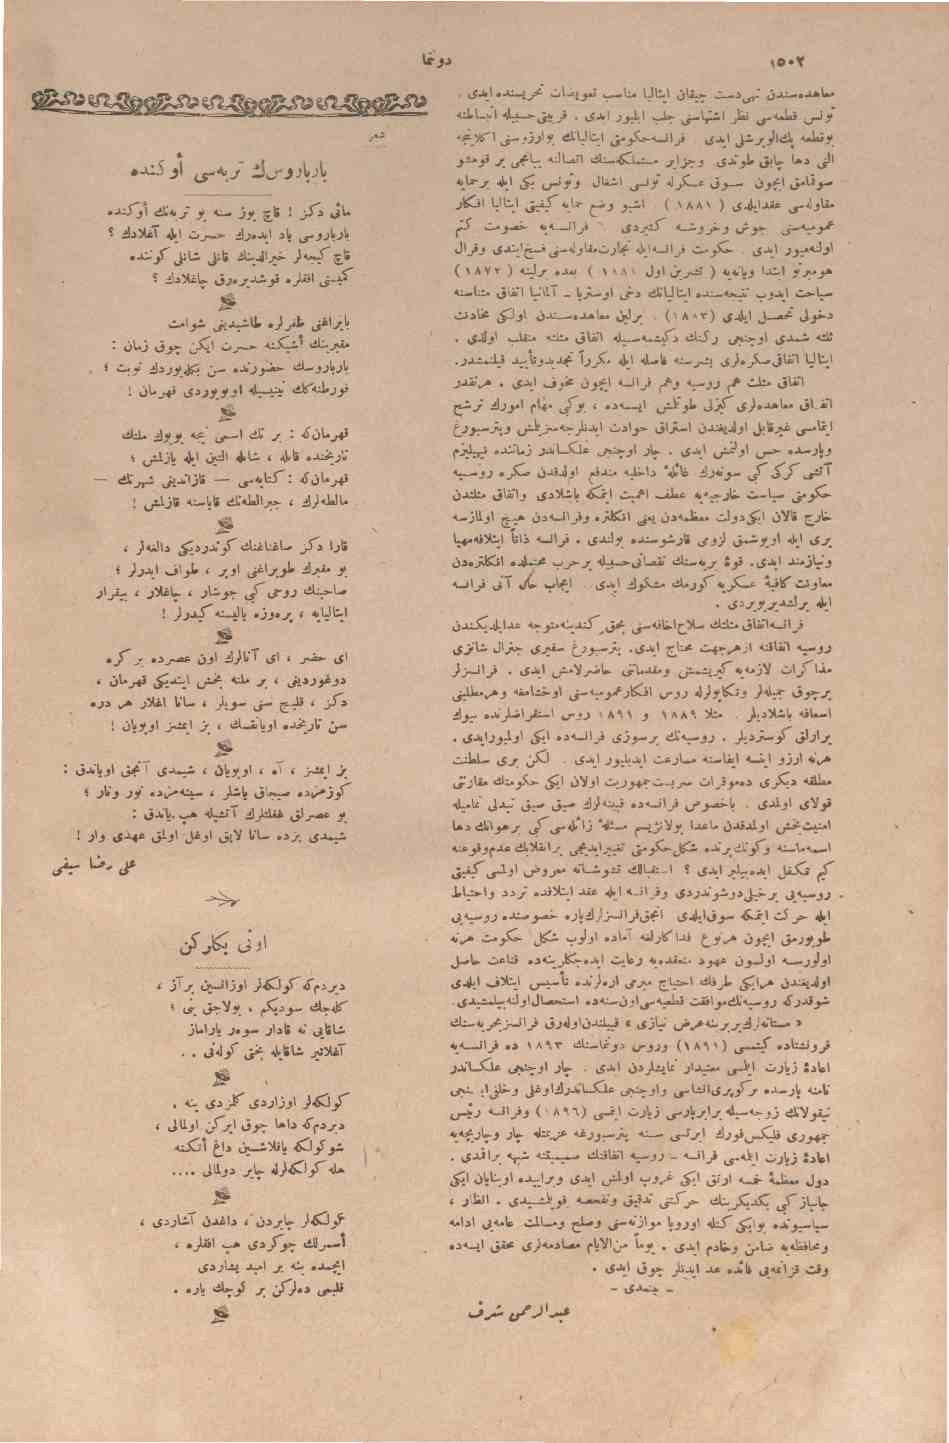 ١٥٠٢
دونما
معاهده‌سندن تهی‌دست چیقان ایتالیا مناسب تعویضات تحریسنده ایدی .
تونس قطعه‌سی نظر اشتهاسنی جلب ایلیور ایدی . قربیتی حسبیله
بوقطعه پك الویرشلی ایدی فرانسه حكومتی ایتالیانك بوآرزوسنی
الی دها چابق طوتدی وجزایر مستملكه‌سنك اتصالنه یبانجی بر قومشو
سوقمامق ایچون سوق عسكرله تونسی اشغال وتونس بكی ایله برحمایه
مقاوله‌سی عقدایلدی ( ١٨٨١ ) اشبو وضع حمایه كیفیتی ایتالیا افكار
عمومیه‌سنی جوش وخروشه كتیردی فرانسه‌یه خصومت كتم
اولنه‌میور ایدی . حكومت فرانسه ایله تجارت مقاوله‌سنی فسخ ایتدی وقرال
هومبرتو ابتدا ویانه‌یه ( تشرین اول ١٨٨١ ) بعده برلینه ( ١٨٧٣ )
سیاحت ایدوب نتیجه‌سنده ایتالیانك دخی اوستریا ـ آلمانیا اتفاق مثناسنه
دخولی تحصیل ایلدی (١٨٨٣) . برلین معاهده‌سندن اولكی مخادنت
ثلثه شمدی اوچنجی ركنك دكیشمه‌سیله اتفاق مثلثه منقلب اولدی .
ایتالیا اتفاقی صكره‌لری بشرسنه فاصله ایله مكرراً تجدیدوتأیید قیلنمشدر.
اتفاق مثلث هم روسیه وهم فرانسه ایچون مخوف ایدی . هرنقدر
اتفاق معاهده‌لری كیزلی طوتلمش ایسه‌ده ، بوكبی مهام امورك ترشح
ایتمامسی غیرقابل اولدیغندن استراق حوادث ایدنلرجه سزیلمش وپترسبورغ
وپارسده حس اولنمش ایدی . چار اوچنجی علكساندر زماننده نیهیلیزم
آتشی كركی كبی سونه‌رك غائلهٔ داخلیه مندفع اولدقدن صكره روسیه
حكومتی سیاست خارجیه‌یه عطف اهمیت ایتمكه باشلادی واتفاق مثلثدن
خارج قالان ایكی دولت معظمه‌دن یعنی انكلتره وفرانسه‌دن هیچ اولمازسه
بری ایله اویوشمق لزومی قارشوسنده بولندی . فرانسه ذاتاً ایتلافه مهیا
ونیازمند ایدی. قوهٔ بریه‌سنك نقصانی حسبیله برحرب محتملده انكلتره‌دن
معاونت كافیهٔ عسكریه كورمك مشكوك ایدی . ایجاب حال آنی فرانسه
ایله برلشدیریوردی .
فرانسه اتفاق مثلثك سلاح اخافه‌سنی بحق كندینه متوجه عدایلدیكندن
روسیه اتفاقنه ازهرجهت محتاج ایدی. پترسبورغ سفیری جنرال شانزی
مذاكرات لازمه‌یه كیریشمش ومقدماتنی حاضرلامش ایدی . فرانسزلر
برچوق جمیله‌لر وتمكابولرله روس افكارعمومیه‌سنی اوخشامغه وهرمطلبنی
اسعافه باشلادیلر . مثلا ١٨٨٩ و ١٨٩١ روس استقراضلرنده بیوك
یرارلق كوستردیلر . روسیه‌نك برسوزی فرانسه‌ده ایكی اولمیورایدی .
هرنه ارزو ایتسه ایفاسنه مسارعت ایدیلیور ایدی . لكن بری سلطنت
مطلقه دیكری ده‌موقرات سربست جمهوریت اولان ایكی حكومتك مقارنتی
قولای اولمدی . باخصوص فرانسه‌ده قبینه‌لرك صیق صیق تبدلی تمامیله
امنیت بخش اولمدقدن ماعدا بولانژیسم مسئلهٔ زائله‌سی كبی برهوانك دها
اسمه‌ماسنه وكونك برنده شكل حكومتی تغییرایدیجی برانقلابك عدم وقوعنه
كیم تمكفل ایده‌بیلیر ایدی ؟ استقبالك تشوشاته معروض اولمسی كیفیتی
روسیه‌یی برخیلی دوشوندردی وفرانسه ایله عقد ایتلافده تردد واحتیاط
ایله حركت ایتمكه سوق ایلدی انجق فرانسزلرك پاره خصوصنده روسیه‌یی
طویورمق ایچون هرنوع فداكارلغه آماده اولوب شكل حكومت هرنه
اولورسه اولسون عهود منعقده‌یه رعایت ایده‌جكلرینه‌ده قناعت حاصل
اولدیغندن هرایكی طرفك احتیاج مبرمی اره‌لرنده تأسیس ایتلاف ایلدی
شوقدركه روسیه‌نك موافقت قطعیه‌سی اون سنه‌ده استحصال اولنه‌بیلمشیدی.
« مستانه‌لرك بربرینه عرض نیازی » قبیلندن اوله‌رق فرانسزبحریه‌سنك
قرونشتاده كیتمسی (١٨٩١) وروس دونماسنك ١٨٩٣ ده فرانسه‌یه
اعادهٔ زیارت ایلمسی معتبدار نمایشلردن ایدی . چار اوچنجی علكساندر
نامنه پارسده بركوپری انشاسی واوچنجی علكساندرك اوغلی وخلفی ایكنجی
نیقولانك زوجه‌سیله برابرپارسی زیارت ایتمسی (١٨٩٦) وفرانسه رئیس
جمهوری فلیكس فورك ایرتسی سنه پترسبورغه عزیمتله چار وچاریچه‌یه
اعادهٔ زیارت ایلمه‌سی فرانسه ـ روسیه اتفاقنك صمیمیتنه شبهه براقمدی .
دول معظمهٔ خمسه ارتق ایكی غروپ اولمش ایدی وبراییده اوینایان ایكی
جانباز كبی یكدیكرینك حركتنی تدقیق وتفحصه قویلمشیدی . انظار ،
سیاسیونده بوایكی كتله اوروپا موازنه‌سنی وصلح ومسالمت عامه‌یی ادامه
ومحافظه‌یه ضامن وخادم ایدی . یوماً من الایام مصادمه‌لری محقق ایسه‌ده
وقت قزانمه‌یی فائده عد ایدنلر چوق ایدی .
ـ بیتمدی ـ
عبدالرحمن شرف
شعر
بارباروسك تربه‌سی أوكنده
مائی دكز ! قاچ یوز سنه بو تربه‌نك أوكنده
بارباروسی یاد ایده‌رك حسرت ایله آغلادك ؟
قاچ كیجه‌لر خیرالدینك قانلی شانلی كوننده
كمیسنی افقلره قوشدیره‌رق چاغلادك ؟
بایراغنی ظفرلره طاشیدیغی شوامت
مقبرینك أشیكنه حسرت ایكن چوق زمان :
بارباروسك حضورنده سن بكله‌یوردك نوبت ؛
فورطنه‌كك نینیسیله اویویوردی قهرمان !
قهرمان كه : بر تك اسمی نیجه بویوك ملتك
تاریخنده قانله ، شانله التین ایله یازلمش ؛
قهرمان كه : كتابه‌سی — قازاندیغی شهرتك —
مالطه‌لرك ، جبرالطه‌نك قایاسنه قازلمش !
قارا دكز صاغناغنك كوندردیكی دالغه‌لر ،
بو مقبرك طوپراغنی اوپر ، طواف ایدرلر ؛
صاحبنك روحی كبی جوشار ، چاغلار ، بیقرار
ایتالیایه ، پره‌وزه یالیسنه كیدرلر !
ای حضر ، ای آنالرك اون عصرده بر كره
دوغوردیغی ، بر ملته بخش ایتدیكی قهرمان ،
دكز ، قلیچ سنی سویلر ، سانا اغلار هر دره
سن تاریخده اویانقسك ، بز ایمشز اویویان !
بز ایمشز ، آه ، اویویان ، شیمدی آنجق اویاندق :
كوزمزده صیجاق یاشلر ، سینه‌مزده نور ونار ؛
بو عصرلق غفلتلرك آتشیله هپ یاندق :
شیمدی بزده سانا لایق اوغل اولمق عهدی وار !
علی رضا سیفی
اونی بكلركن
دیردم كه كولكه‌لر اوزانسین بر آز ،
كله‌جك سودیكم ، بولاجق بنی ؛
شاقایی نه قادار سوه‌ر یاراماز
آغلاتیر شاقایله بختی كوله‌نی . .
كولكه‌لر اوزاردی كلمزدی ینه ،
دیردم كه داها چوق ایركن اولمالی ،
شو كولكه یاقلاشسین داغ أتكنه
هله كولكه‌لرله چایر دولمالی ....
كولكه‌لر چایردن ، داغدن آشاردی ،
أسمرلك چوكردی هپ افقلره ،
ایچمده ینه بر امید یشاردی
قلبمی ده‌لركن بر كوچك یاره .